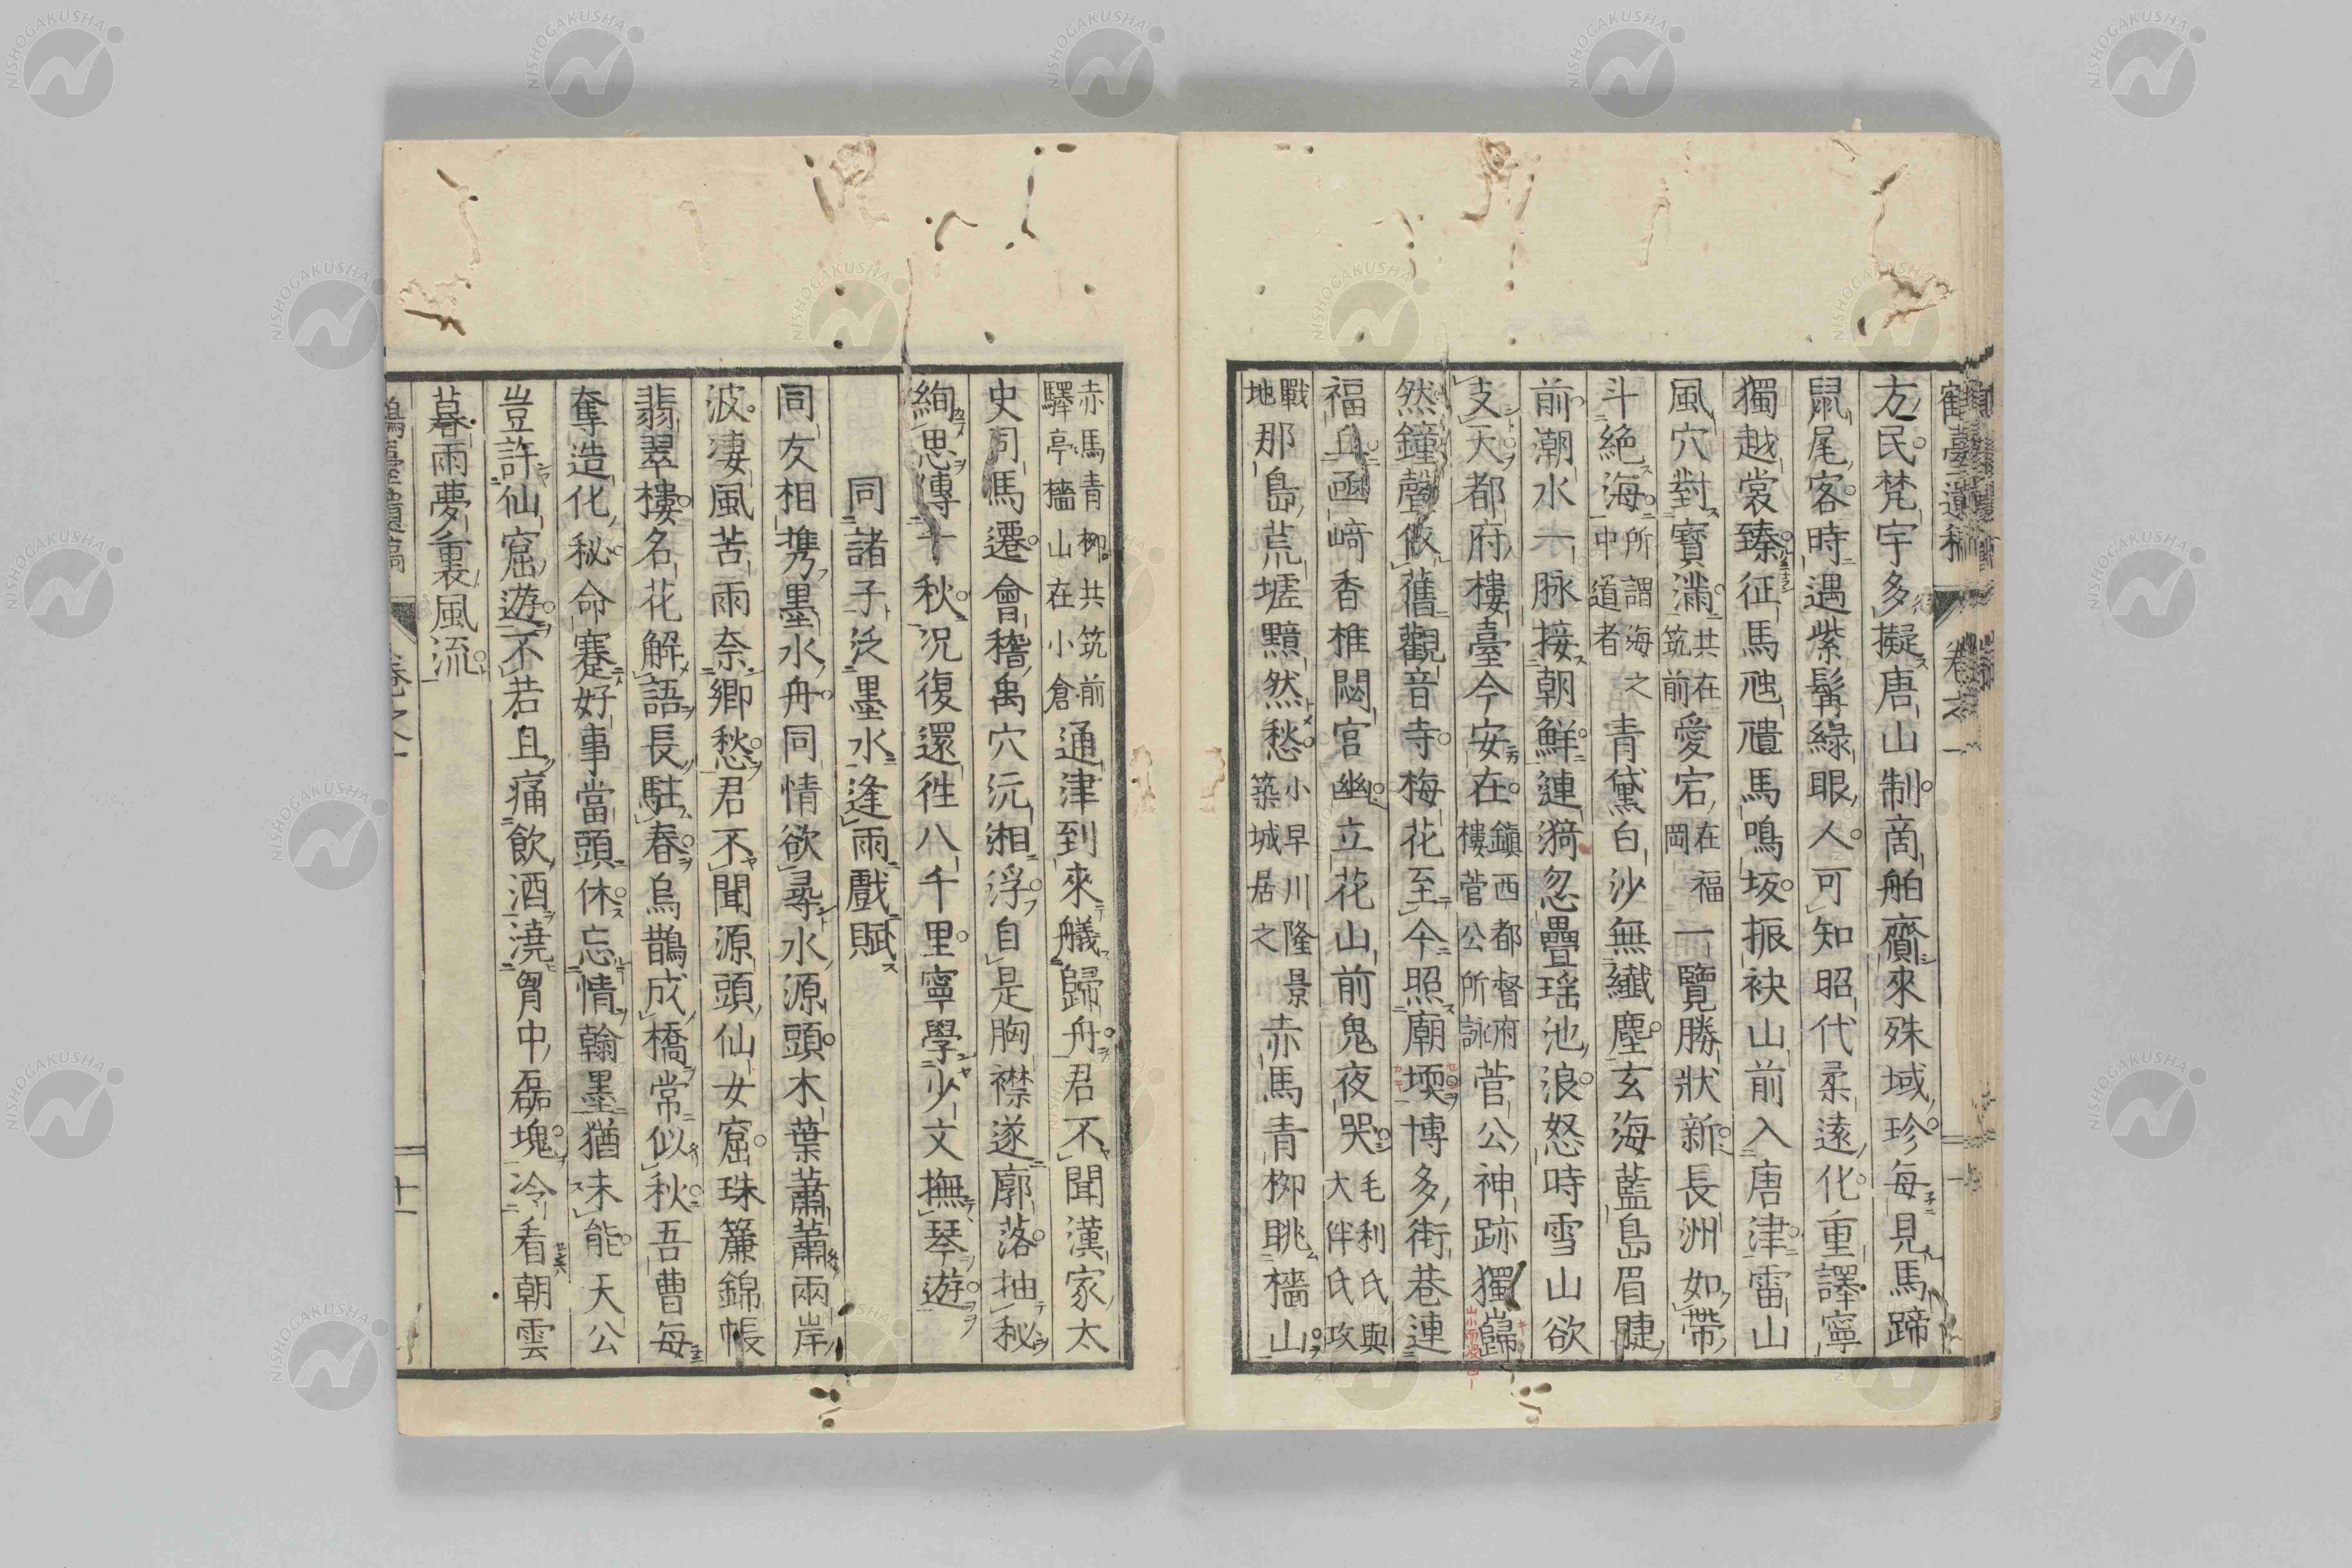 鶴臺遺稿 卷之一 十一
方民梵宇多擬唐山制商舶齎來殊域珍每見馬蹄
鼠尾客時遇紫髯綠眼人可知昭代柔遠化重譯寧
獨越裳臻征馬邊馬鳴坂振袂山前入唐津雷山
風穴對寶滿共在筑前愛宕在福岡一覽勝狀新長洲如帶
斗絕海所謂海之中道者青黛白沙無纖塵玄海藍島眉睫
前潮水一脉接朝鮮連漪忽疊瑶池浪怒時雪山欲
支天都府樓臺今安在鎮西都督府樓菅公所詠菅公神跡獨巋
然鐘聲攸舊觀音寺梅花至今照廟堧博多街巷連
福丘凾﨑香椎閟宮幽立花山前鬼夜哭毛利氏與大伴氏攻
戰地那島荒墟黯然愁小早川隆景築城居之赤馬青柳眺檣山
赤馬青柳共筑前驛亭檣山在小倉通津到來艤歸舟君不聞漢家太
史司馬遷會稽禹穴沅湘浮自是胸襟遂廓落抽秘
絢思傳千秋況復還徃八千里寧學少文撫琴遊
同諸子泛墨水逢雨戲賦
同友相携墨水舟同情欲尋水源頭木葉蕭蕭兩岸
波凄風苦雨奈鄉愁君不聞源頭仙女窟珠簾錦帳
翡翠樓名花解語長駐春烏鵲成橋常似秋吾曹每
奪造化秘命蹇好事當頭休忘情翰墨猶未能天公
豈許仙窟遊不若且痛飲酒澆胷中磊塊冷看朝雲
暮雨夢裏風流
鶴臺遺稿 卷之一 十一